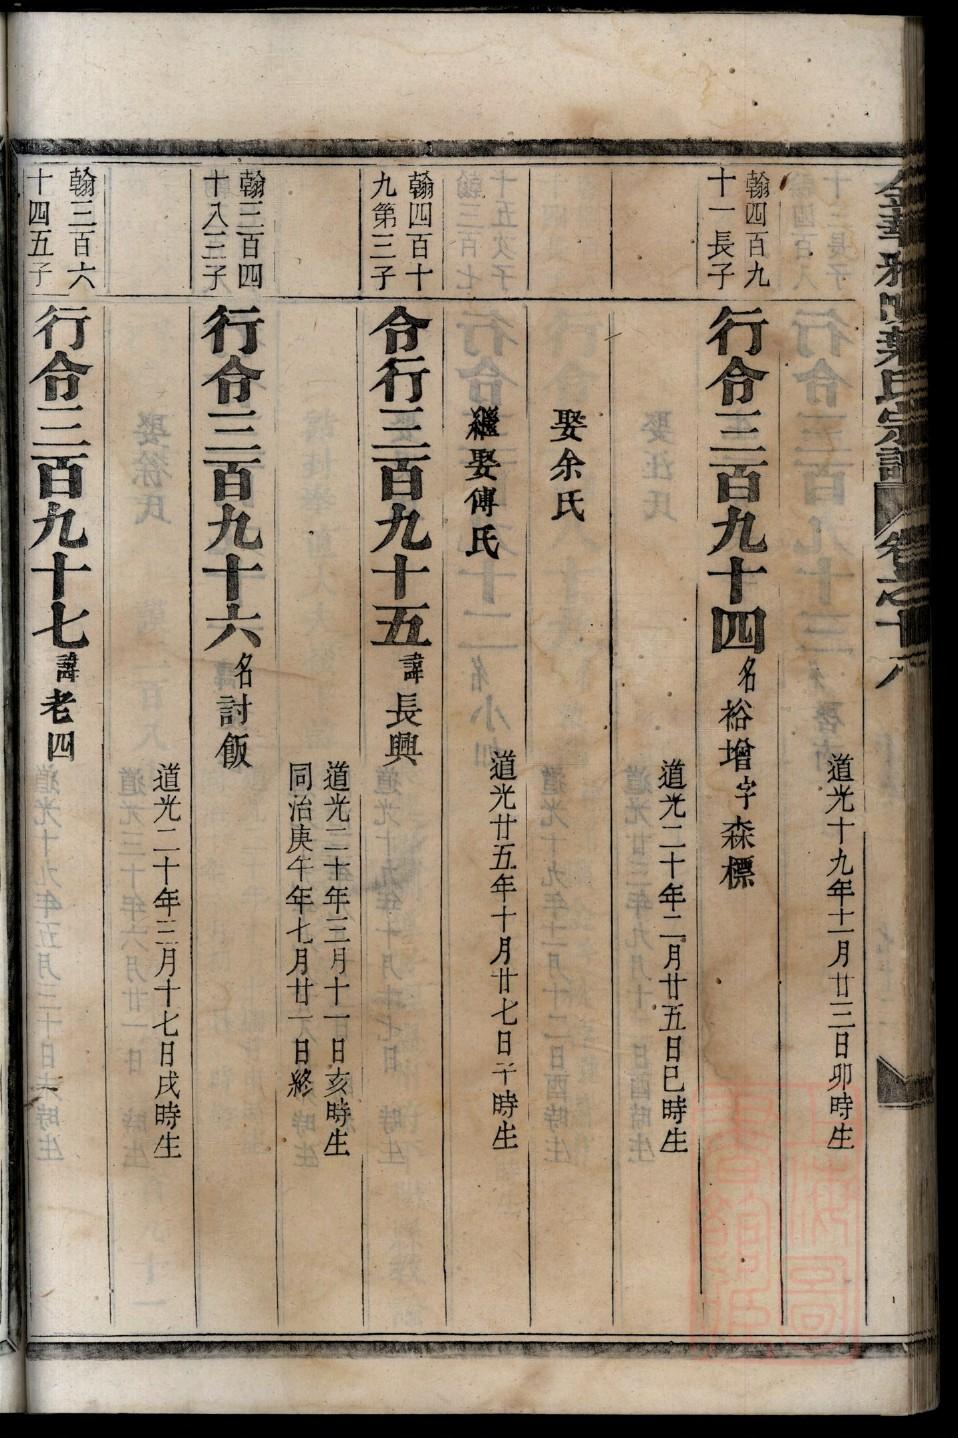 道光十九年十一月廿三日卯時生
翰四百九
十一長子
行令三百九十四名裕增字森標
道光二十年二月廿五日巳時生
娶余氏
繼娶傅氏
道光廿五年十月廿七日子時生
翰四百十
九第三子
令行三百九十五諱長興
道光二十年三月十一日亥時生
同治庚午年七月廿一日終
翰三百四
十八三子
行令三百九十六名討飯
道光二十年三月十七日戌時生
翰三百六
十四五子
行令三百九十七諱老四